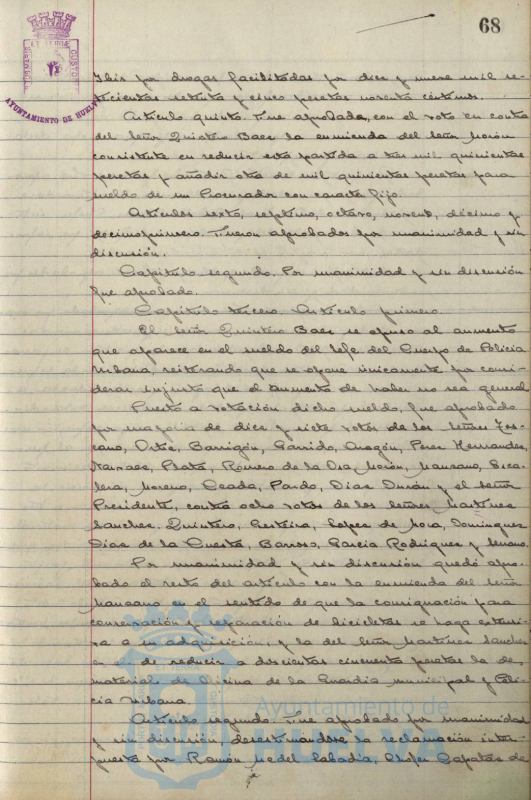 68
AYUNTAMIENTO DE HUELVA
por drogas facilitadas por diez y nueve mil se-
tecientas setenta y cinco pesetas noventa céntimos.
Artículo quinto. Fue aprobada, con el voto en contra
del Señor Quintero Baez la enmienda del Señor Morón
consistente en reducir esta partida a tres mil quinientas
pesetas y añadir otra de mil quinientas pesetas para
sueldo de un Procurador con caracter fijo.
Artículos sexto, septimo, octavo, noveno, décimo y
decimoprimero. Fueron aprobados por unanimidad y sin
discusión.
Capítulo segundo. Por unanimidad y sin discusión
fue aprobado.
Capítulo tercero. Artículo primero.
El Señor Quintero Baez se opuso al aumento
que aparece en el sueldo del Jefe del Cuerpo de Policía
Urbana, reiterando que se opone únicamente por consi-
derar injusto que el aumento de haber no sea general
Puesto a votación dicho sueldo, fue aprobado
por mayoría de diez y siete votos de los Señores Tos-
cano, Ortiz, Barrigón, Garrido, Aragón, Perez Hernandez,
Narvaez, Plata, Romero de la Osa Morón, Manzano, Esca-
lera, Moreno, Ceada, Pardo, Diaz Durán y el Señor
Presidente, contra ocho votos de los Señores Martinez
Sanchez, Quintero, Lopez de Mora, Dominguez
Diaz de la Cuesta, Barroso, Garcia Rodriguez y
Por unanimidad y sin discusión quedó apro-
bado el resto del artículo con la enmienda del Señor
Manzano en el sentido de que la consignación para
conservación y reparación de bicicletas se haga extensi-
va a su adquisición, y la del Señor Martinez Sanchez
en el de reducir a doscientas cincuenta pesetas la de
material de oficina de la Guardia municipal y Poli-
cía Urbana.
Artículo segundo. Fue aprobado por unanimidad
y sin discusión, desestimandose la reclamación inter-
puesta por Ramón Medel Labadía, Chofer Capataz de
Ayuntamiento de
HUELVA